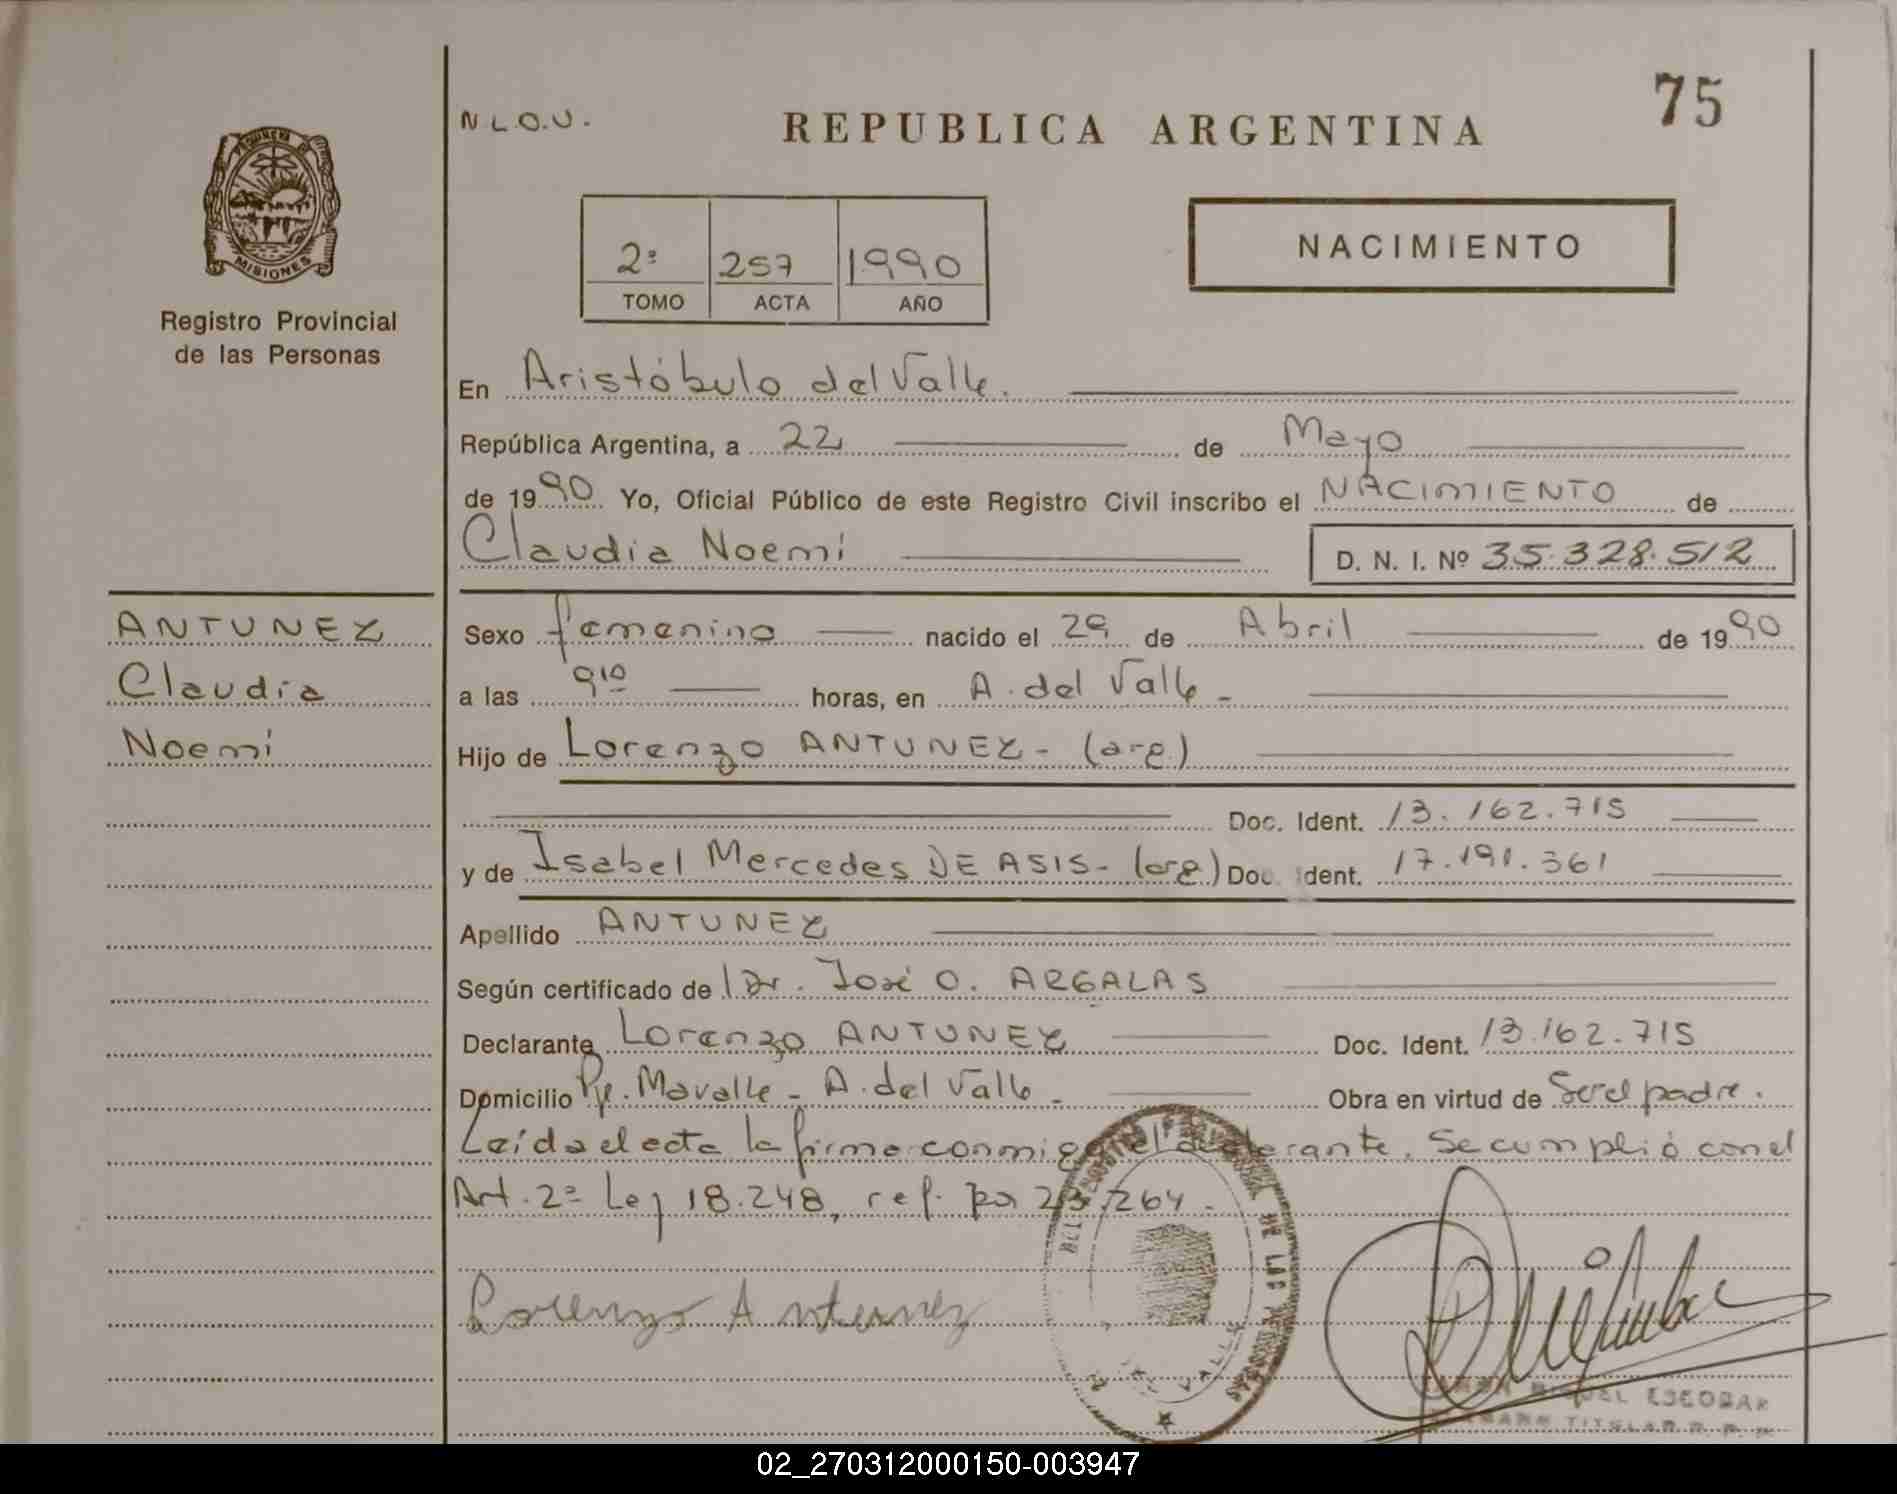 75
N.L.O.U.
REPUBLICA ARGENTINA
PROVINCIA DE
MISIONES
Registro Provincial
de las Personas
2º 257 1990
TOMO ACTA AÑO
NACIMIENTO
En Aristóbulo del Valle.
República Argentina, a 22 de Mayo
de 1990 Yo, Oficial Público de este Registro Civil inscribo el NACIMIENTO de
Claudia Noemí D. N. I. Nº 35.328.512
ANTUNEZ
Claudia
Noemí
Sexo femenino nacido el 29 de Abril de 1990
a las 9 10 horas, en A. del Valle -
Hijo de Lorenzo ANTUNEZ - (arg.)
Doc. Ident. 13.162.715
y de Isabel Mercedes DE ASIS - (arg) Doc. Ident. 17.191.361
Apellido ANTUNEZ
Según certificado de Dr. José O. ARGALAS
Declarante Lorenzo ANTUNEZ Doc. Ident. 13.162.715
Domicilio Pje. Mavalle - A. del Valle - Obra en virtud de Ser el padre.
Leída el acta la firma conmigo el declarante. Se cumplió con el
Art. 2º Ley 18.248, ref. por 23.264.
Lorenzo Antunez
DE LAS PERSONAS
DEL VALLE
RAMON MIGUEL ESCOBAR
TITULAR R. P. P.
02_270312000150-003947